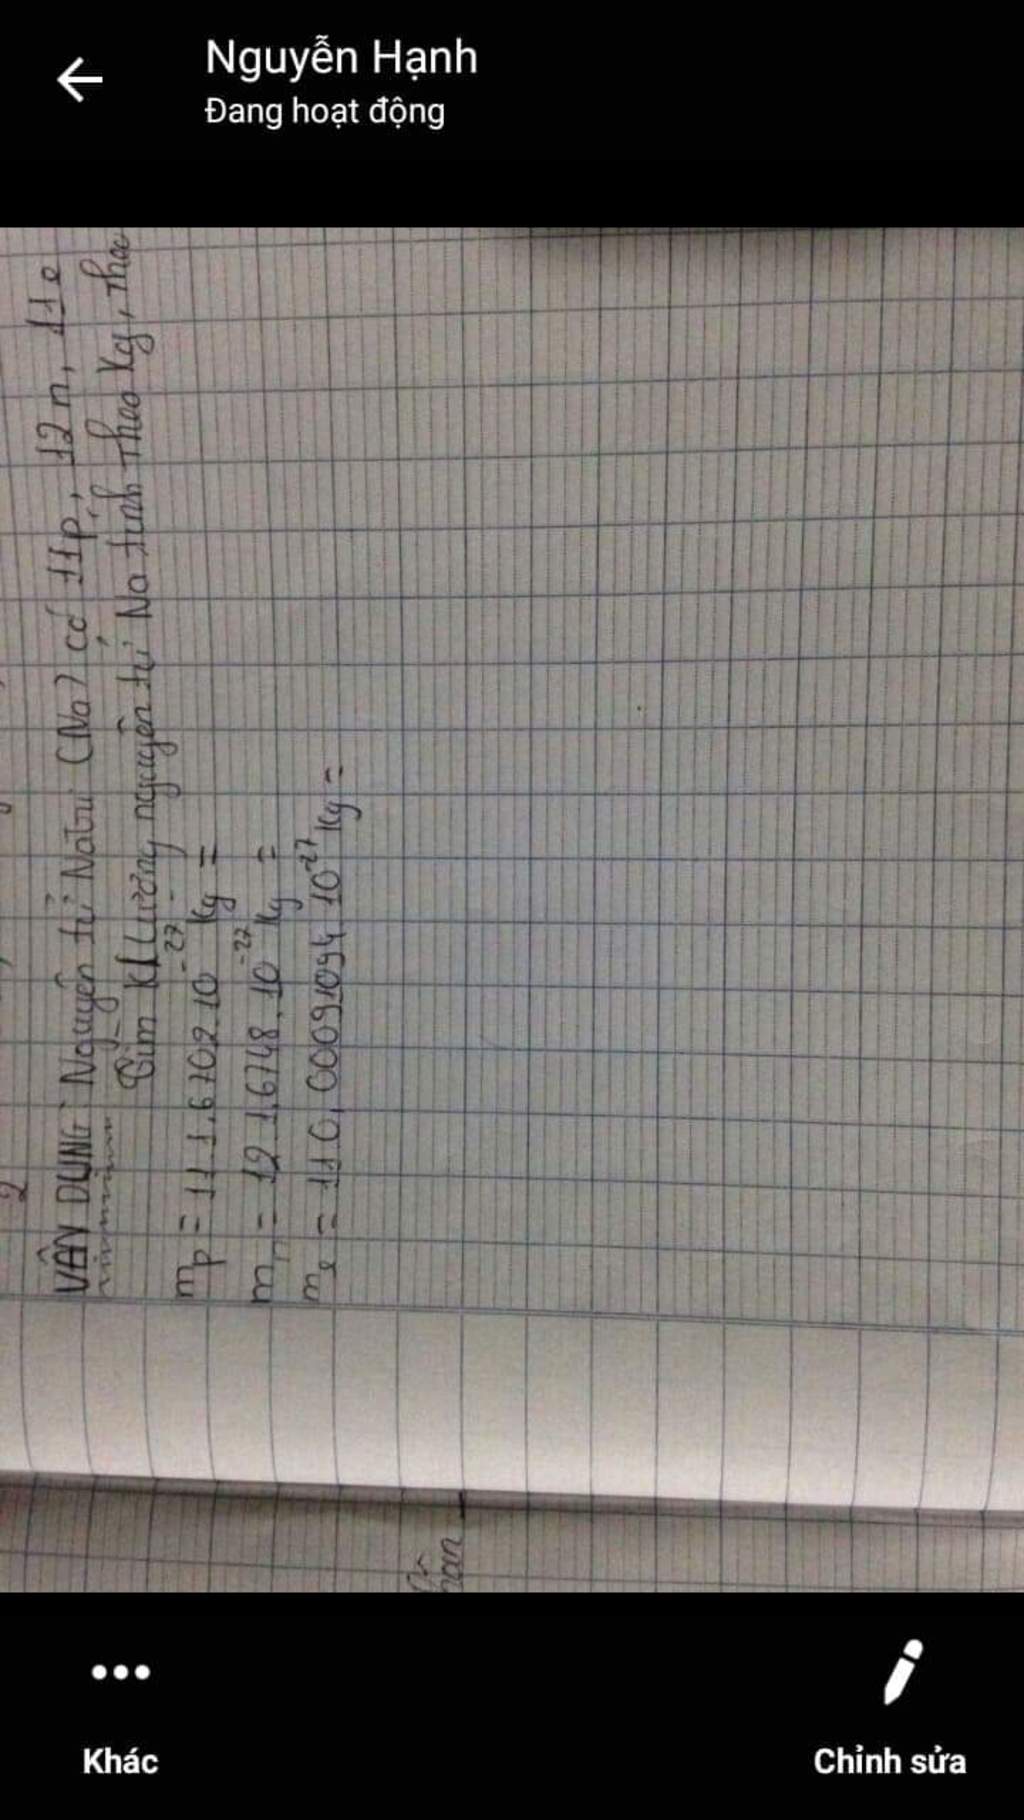 Nguyễn Hạnh
Đang hoạt động
2
VẬN DỤNG: Nguyên tử Natri (Na) có 11p, 12n, 11e
Tìm KLượng nguyên tử Na tính theo Kg, theo
mp = 11.1,6702.10⁻²⁷ Kg =
mn = 12.1,6748.10⁻²⁷ Kg =
me = 11.0,00091094.10⁻²⁷ Kg =
Khác
Chỉnh sửa